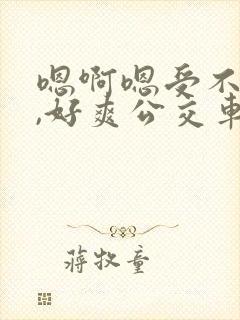 嗯啊嗯受不
,好爽公交车
蒋牧童